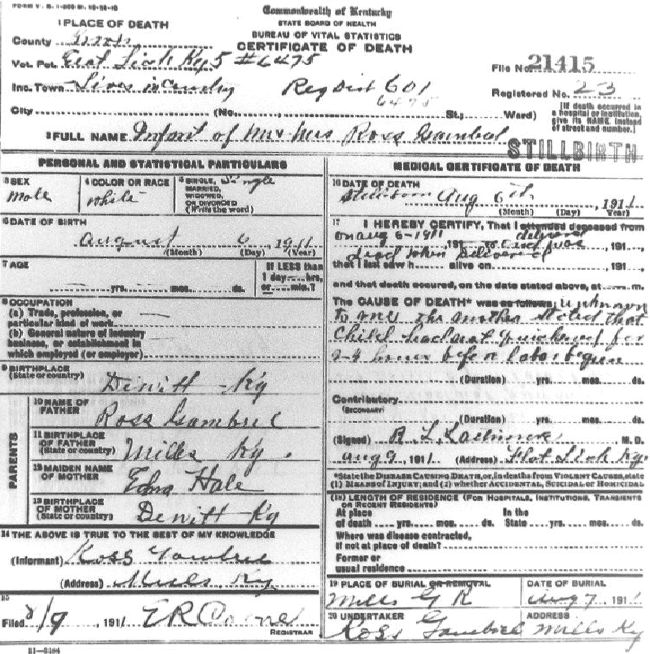 Commonwealth of Kentucky
STATE BOARD OF HEALTH
BUREAU OF VITAL STATISTICS
CERTIFICATE OF DEATH
1 PLACE OF DEATH
County
Vot. Pct. Flat Lick Ky 5 #6475
File No. 21415
Inc. Town Reg Dist 601
6475
Registered No. 23
City (No. St.; Ward)
[If death occurred in a hospital or institution, give its NAME, instead of street and number.]
2 FULL NAME Infant of Mr & Mrs Ross Gambrel
STILLBIRTH
PERSONAL AND STATISTICAL PARTICULARS
3 SEX
Male
4 COLOR OR RACE
White
5 SINGLE, MARRIED, WIDOWED, OR DIVORCED (Write the word)
Single
6 DATE OF BIRTH
August 6 1911
(Month) (Day) (Year)
7 AGE
yrs. mos. ds.
If LESS than 1 day hrs. or min.?
8 OCCUPATION
(a) Trade, profession, or particular kind of work
(b) General nature of industry business, or establishment in which employed (or employer)
9 BIRTHPLACE
(State or country)
Dewitt Ky
PARENTS
10 NAME OF FATHER
Ross Gambrel
11 BIRTHPLACE OF FATHER
(State or country)
Mills Ky.
12 MAIDEN NAME OF MOTHER
Edna Hale
13 BIRTHPLACE OF MOTHER
(State or country)
Dewitt Ky
14 THE ABOVE IS TRUE TO THE BEST OF MY KNOWLEDGE
(Informant) Ross Gambrel
(Address) Mills Ky
15
Filed 8/9 1911
REGISTRAR
11-3184
MEDICAL CERTIFICATE OF DEATH
16 DATE OF DEATH
Stillborn Aug 6th, 1911
(Month) (Day) (Year)
17 I HEREBY CERTIFY, That I attended deceased from
on Aug 6-1911, 191 to child was 191
dead when delivered
that I last saw h alive on 191
and that death occurred, on the date stated above, at m.
The CAUSE OF DEATH* was as follows: unknown
to me the mother stated that
child had not quickened for
24 hours before labor begun
(Duration) yrs. mos. ds.
Contributory
(SECONDARY)
(Duration) yrs. mos. ds.
(Signed) R. L. M. D.
Aug 9, 1911 (Address) Flat Lick Ky.
*State the DISEASE CAUSING DEATH, or, in deaths from VIOLENT CAUSES, state (1) MEANS OF INJURY; and (2) whether ACCIDENTAL, SUICIDAL or HOMICIDAL
(18) LENGTH OF RESIDENCE (FOR HOSPITALS, INSTITUTIONS, TRANSIENTS OR RECENT RESIDENTS)
At place of death yrs. mos. ds. In the State yrs. mos. ds.
Where was disease contracted, if not at place of death?
Former or usual residence
19 PLACE OF BURIAL OR REMOVAL
Mills
DATE OF BURIAL
Aug 7, 1911
20 UNDERTAKER
Ross Gambrel
ADDRESS
Mills Ky